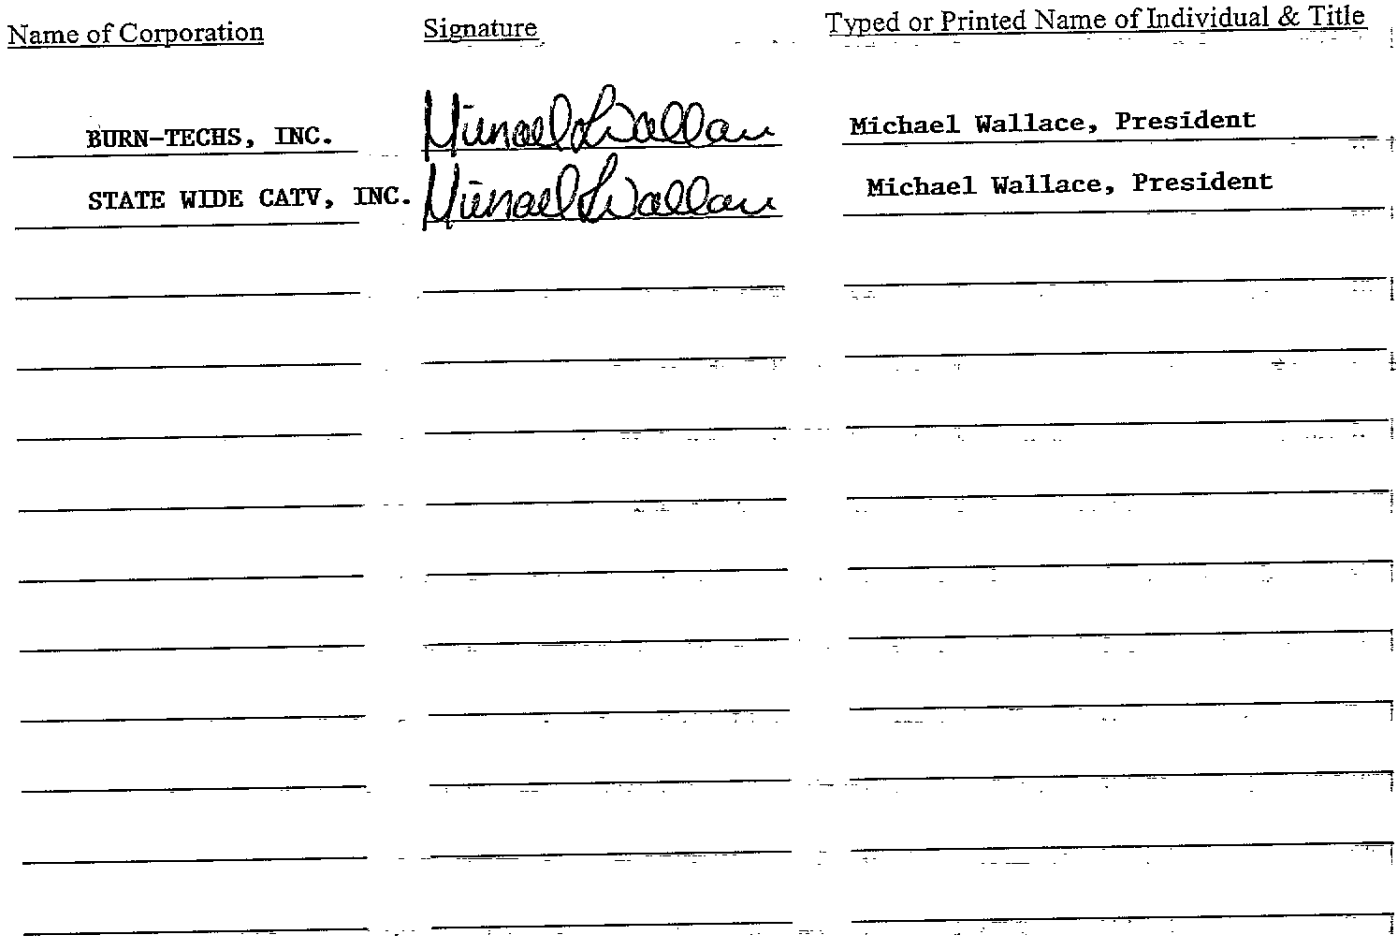 Name of Corporation Signature Typed or Printed Name of Individual & Title
BURN-TECHS, INC. Michael Wallace Michael Wallace, President
STATE WIDE CATV, INC. Michael Wallace Michael Wallace, President